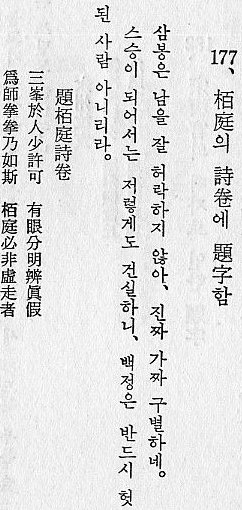 177、栢庭의 詩卷에 題字함
삼봉은 남을 잘 허락하지 않아、진짜 가짜 구별하네。
스승이 되어서는 저렇게도 건실하니、백정은 반드시 헛
된 사람 아니리라。
題栢庭詩卷
三峯於人少許可 有眼分明辨眞假
爲師拳拳乃如斯 栢庭必非虛走者